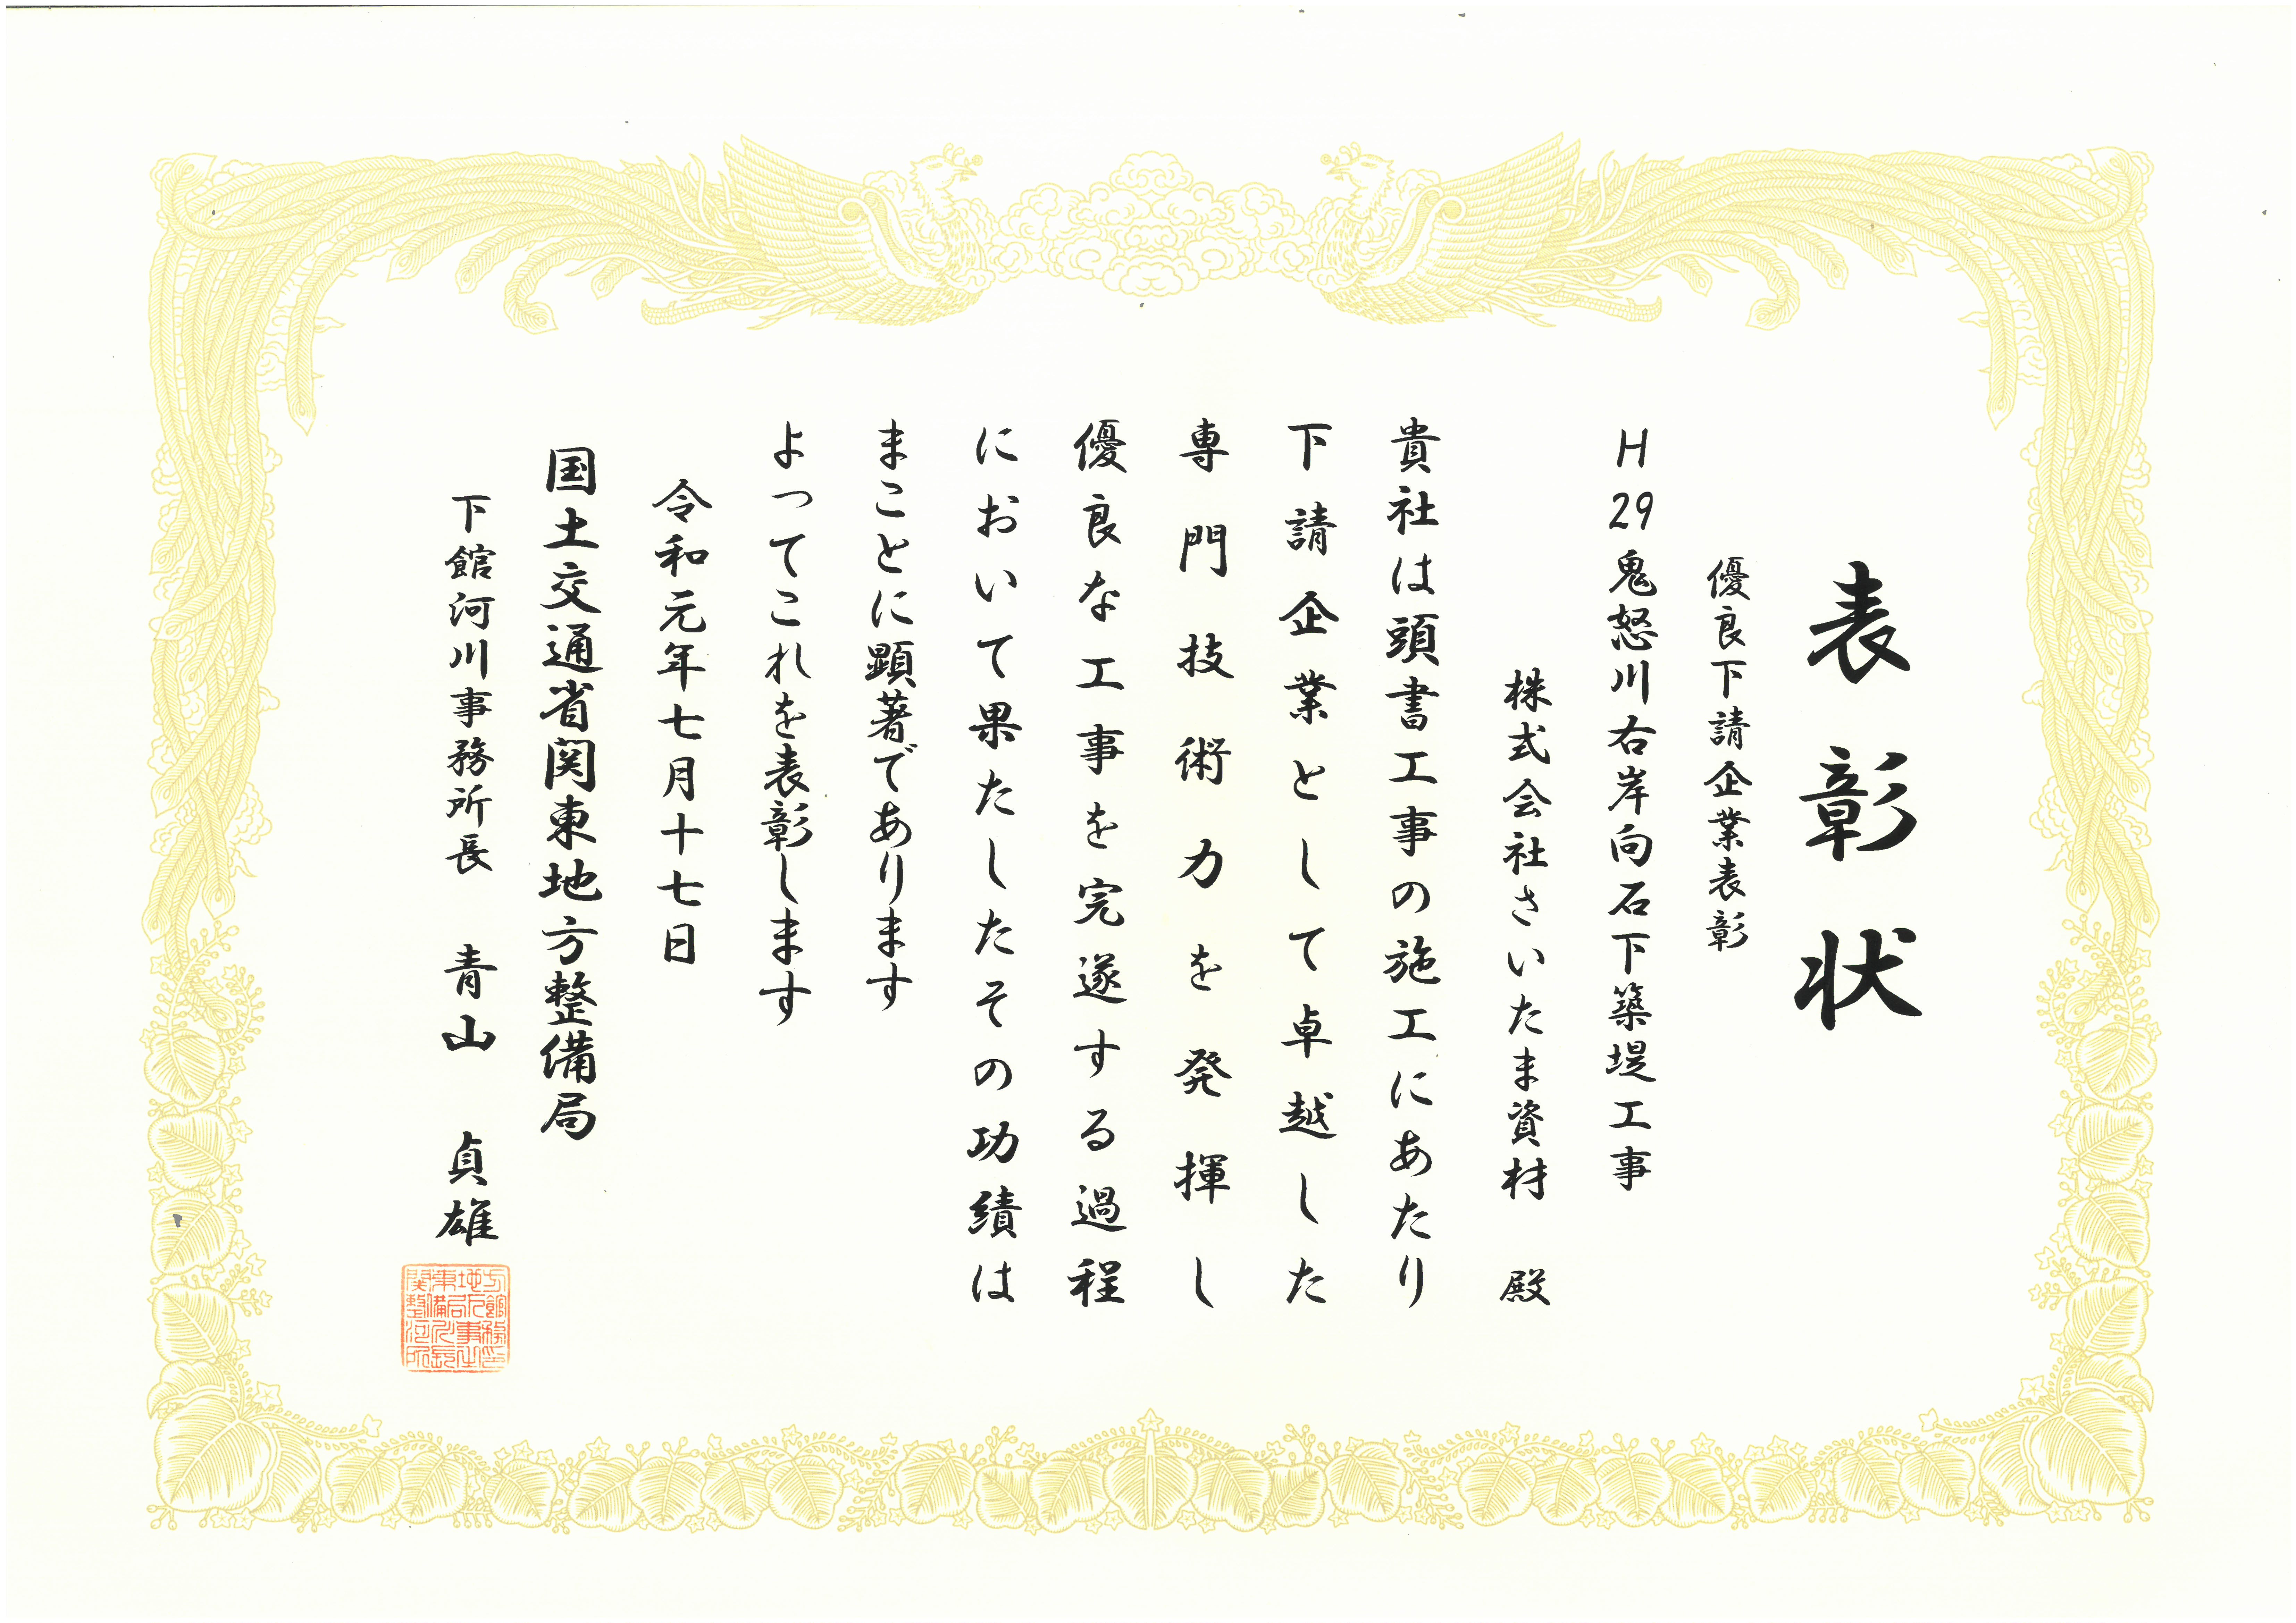 表彰状
優良下請企業表彰
H29鬼怒川右岸向石下築堤工事
株式会社さいたま資材 殿
貴社は頭書工事の施工にあたり
下請企業として卓越した
専門技術力を発揮し
優良な工事を完遂する過程
において果たしたその功績は
まことに顕著であります
よってこれを表彰します
令和元年七月十七日
国土交通省関東地方整備局
下館河川事務所長 青山 貞雄